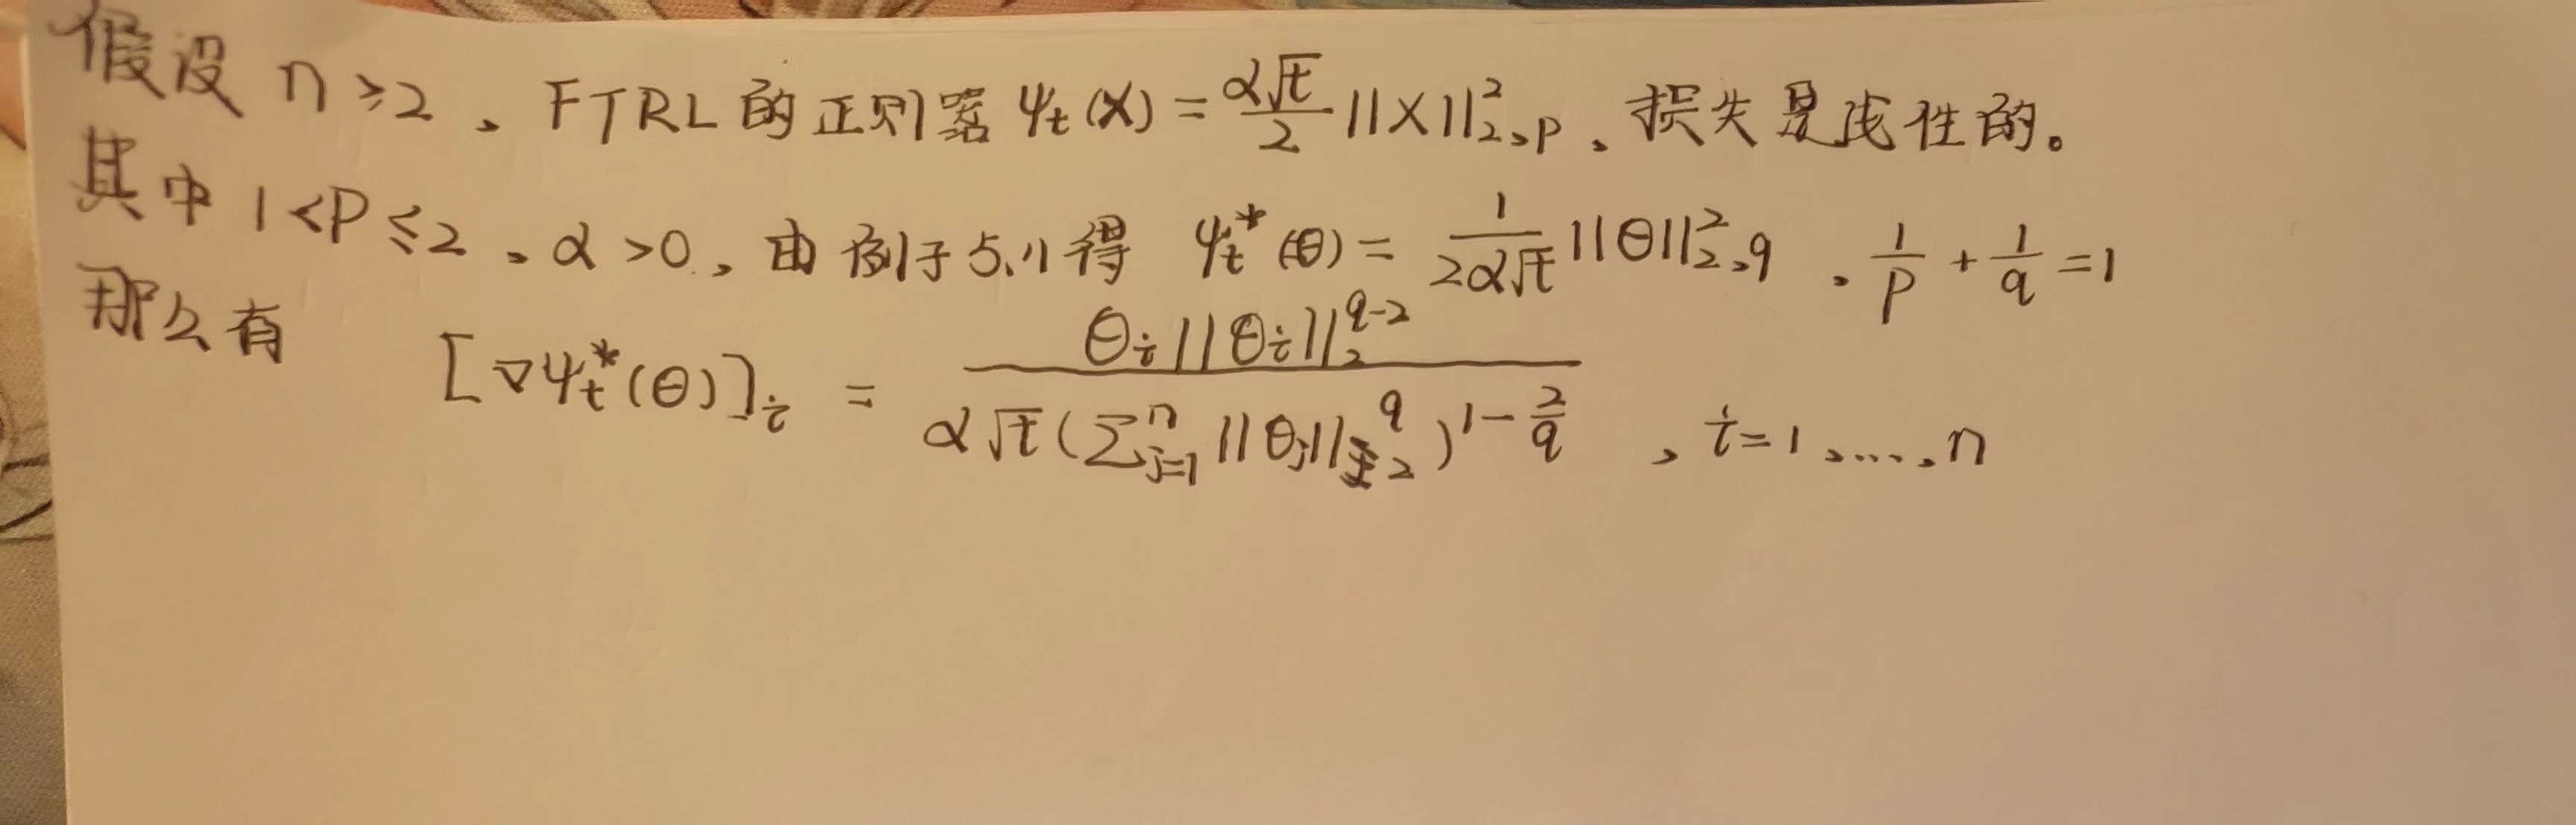 假设 n≥2、FTRL的正则器 ψ_t(X) = \frac{α√t}{2} ||X||²_{2,p}、损失是线性的。
其中 1<p≤2、α>0, 由例子5.11得 ψ_t^*(θ) = \frac{1}{2α√t} ||θ||²_{2,q}、\frac{1}{p} + \frac{1}{q} = 1
那么有 [∇ψ_t^*(θ)]_i = \frac{θ_i ||θ_i||_2^{q-2}}{α√t (∑_{j=1}^n ||θ_j||_2^q)^{1-\frac{2}{q}}} , i=1,...,n